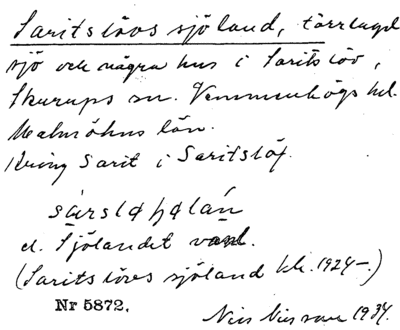 Saritslövs sjöland, torrlagd
sjö och några hus i Saritslöv,
Skurups sn. Vemmenhögs hd.
Malmöhus län.
Kring Sarit i Saritslöf.
el. Sjölandet vanl.
(Saritslövs sjöland kk. 1924-.)
Nr 5872.
Nils Nilsson 1934.